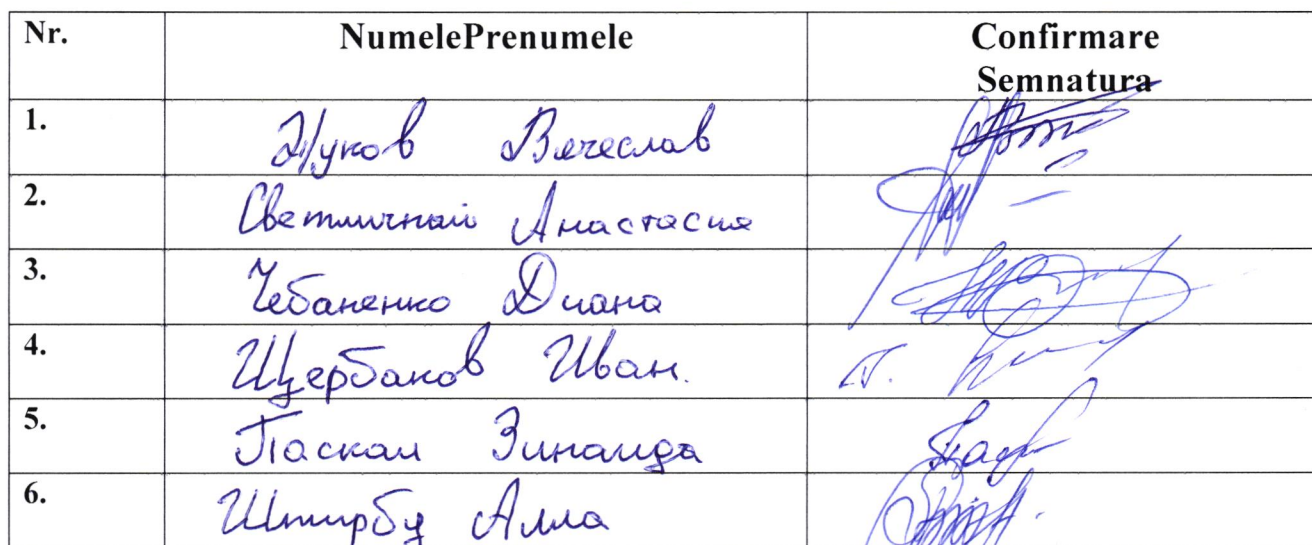 Nr. NumelePrenumele Confirmare
Semnatura
1. Жуков Вячеслав
2. Светличная Анастасия
3. Чебаненко Диана
4. Щербаков Иван.
5. Паскал Зинаида
6. Штирбу Алла